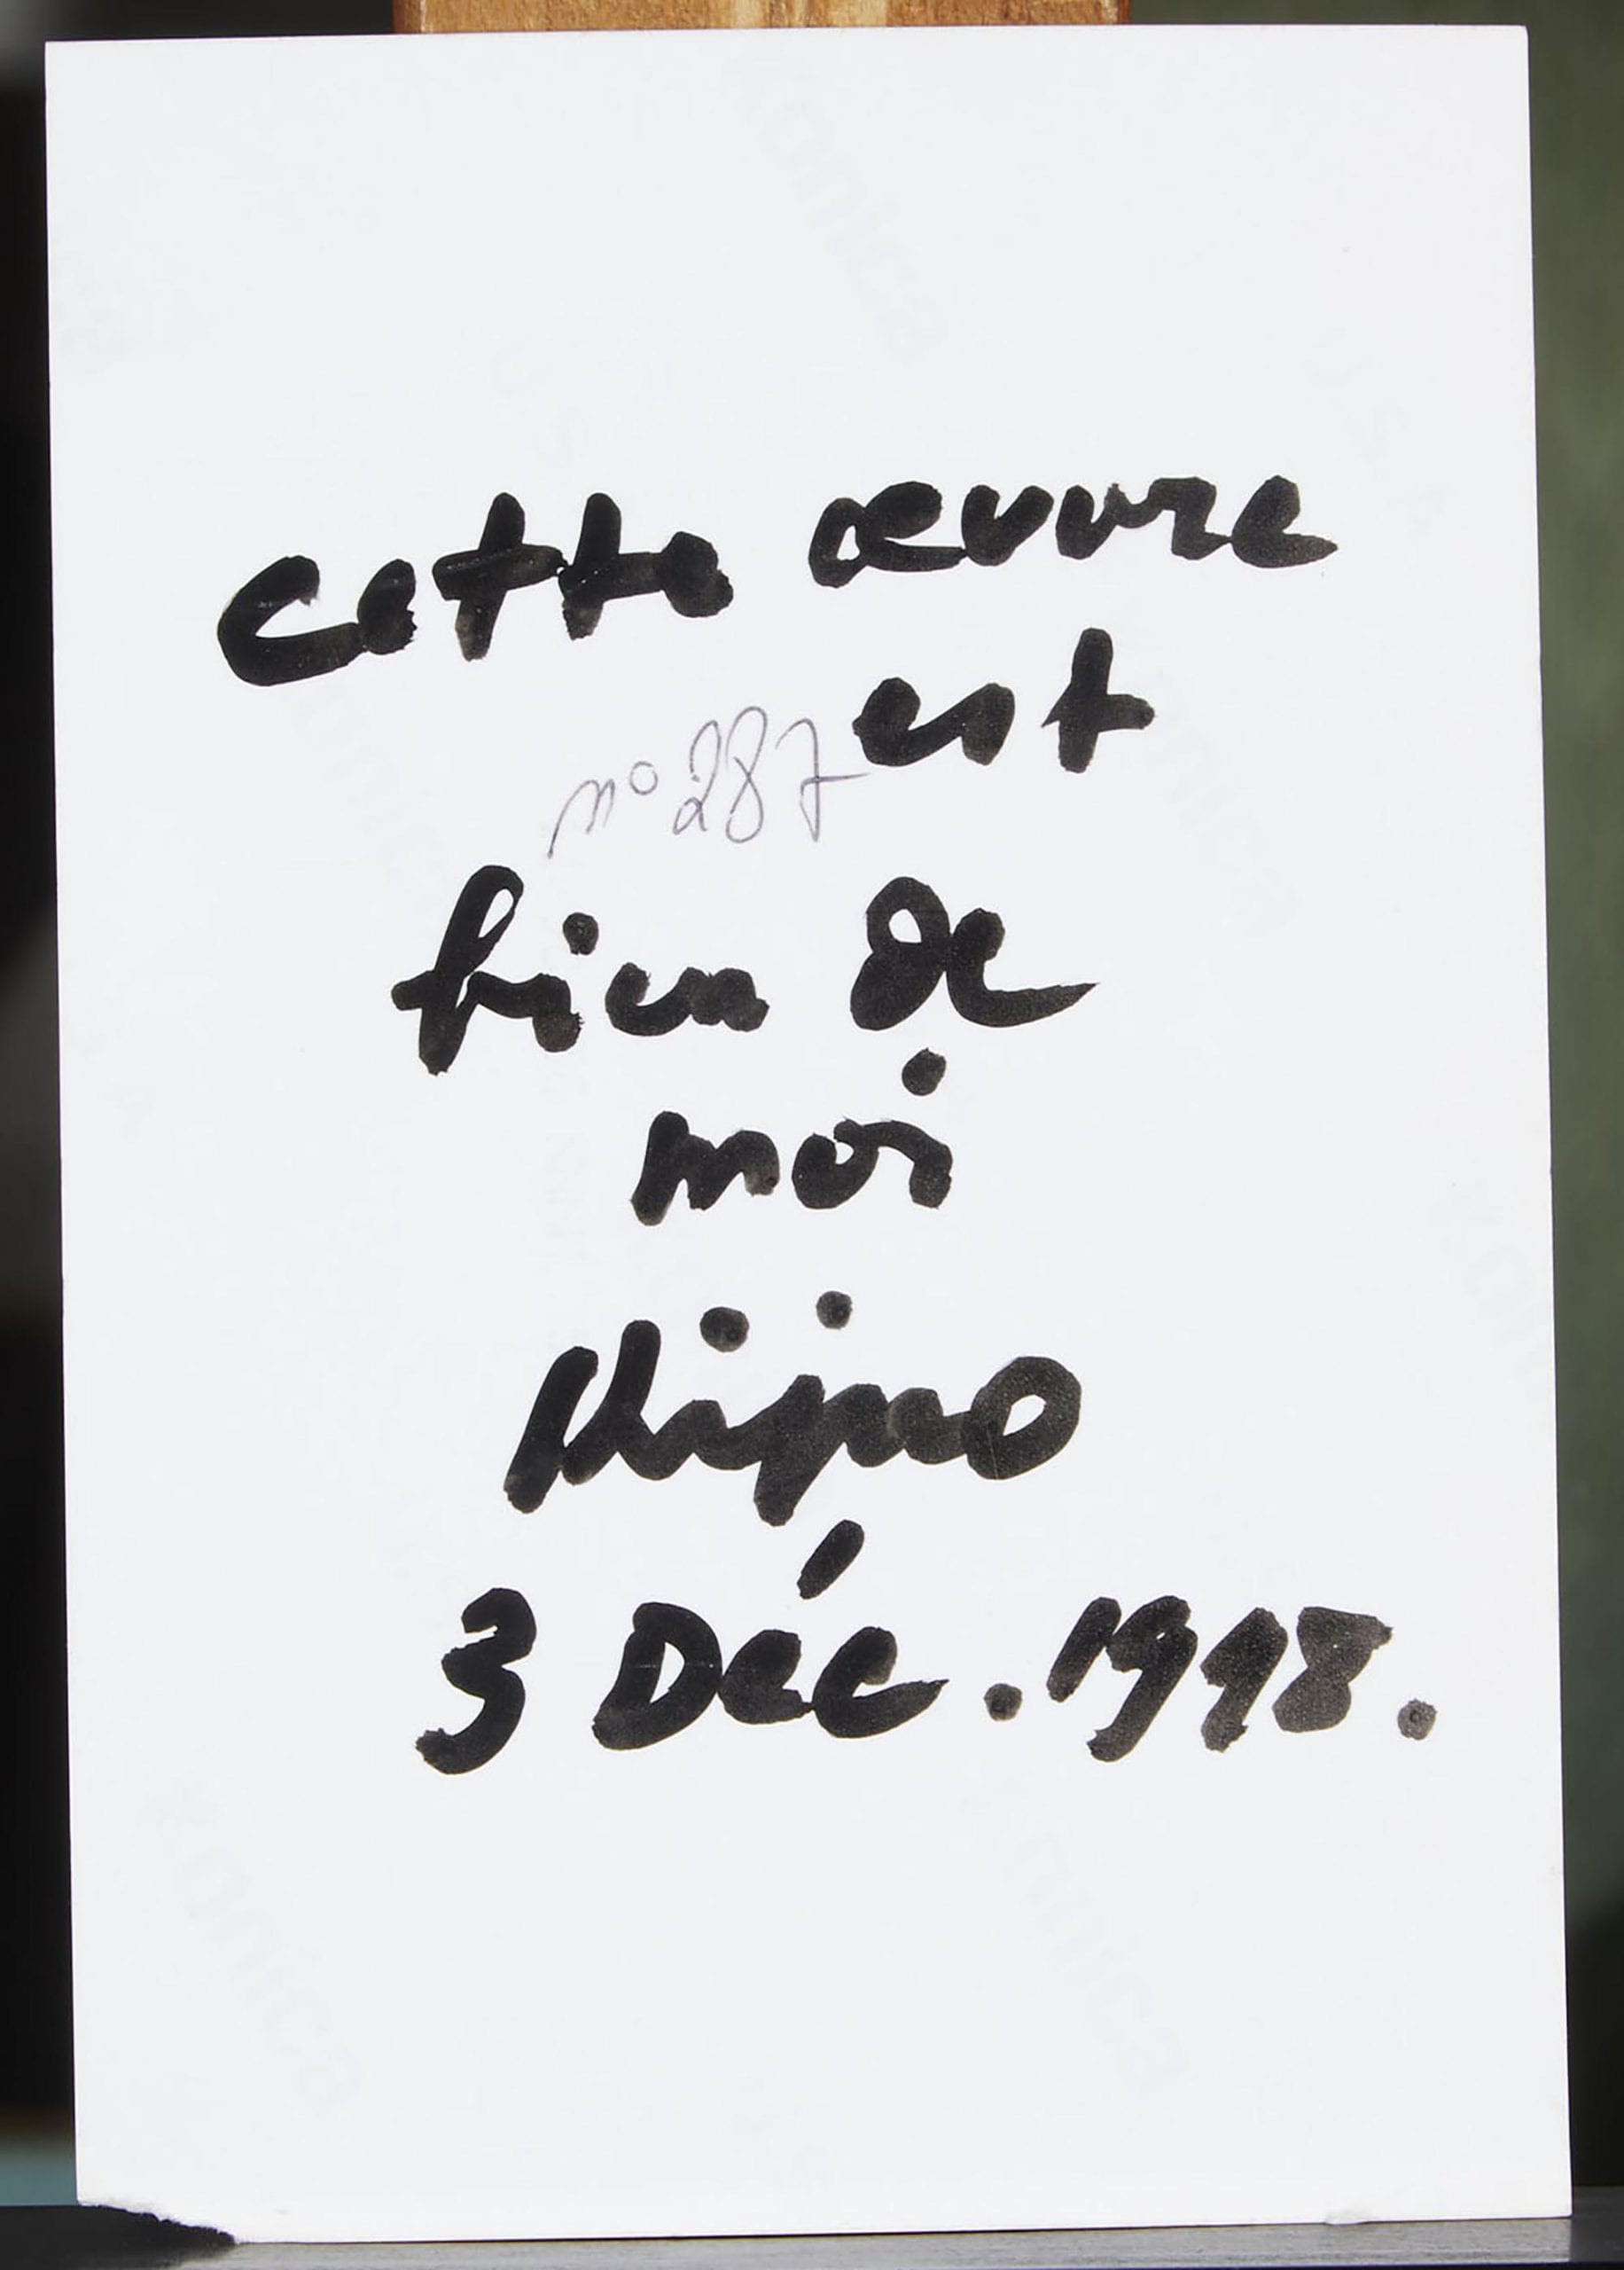 Cette œuvre
est
n° 287
bien de
moi
Nijno
3 Déc. 1998.